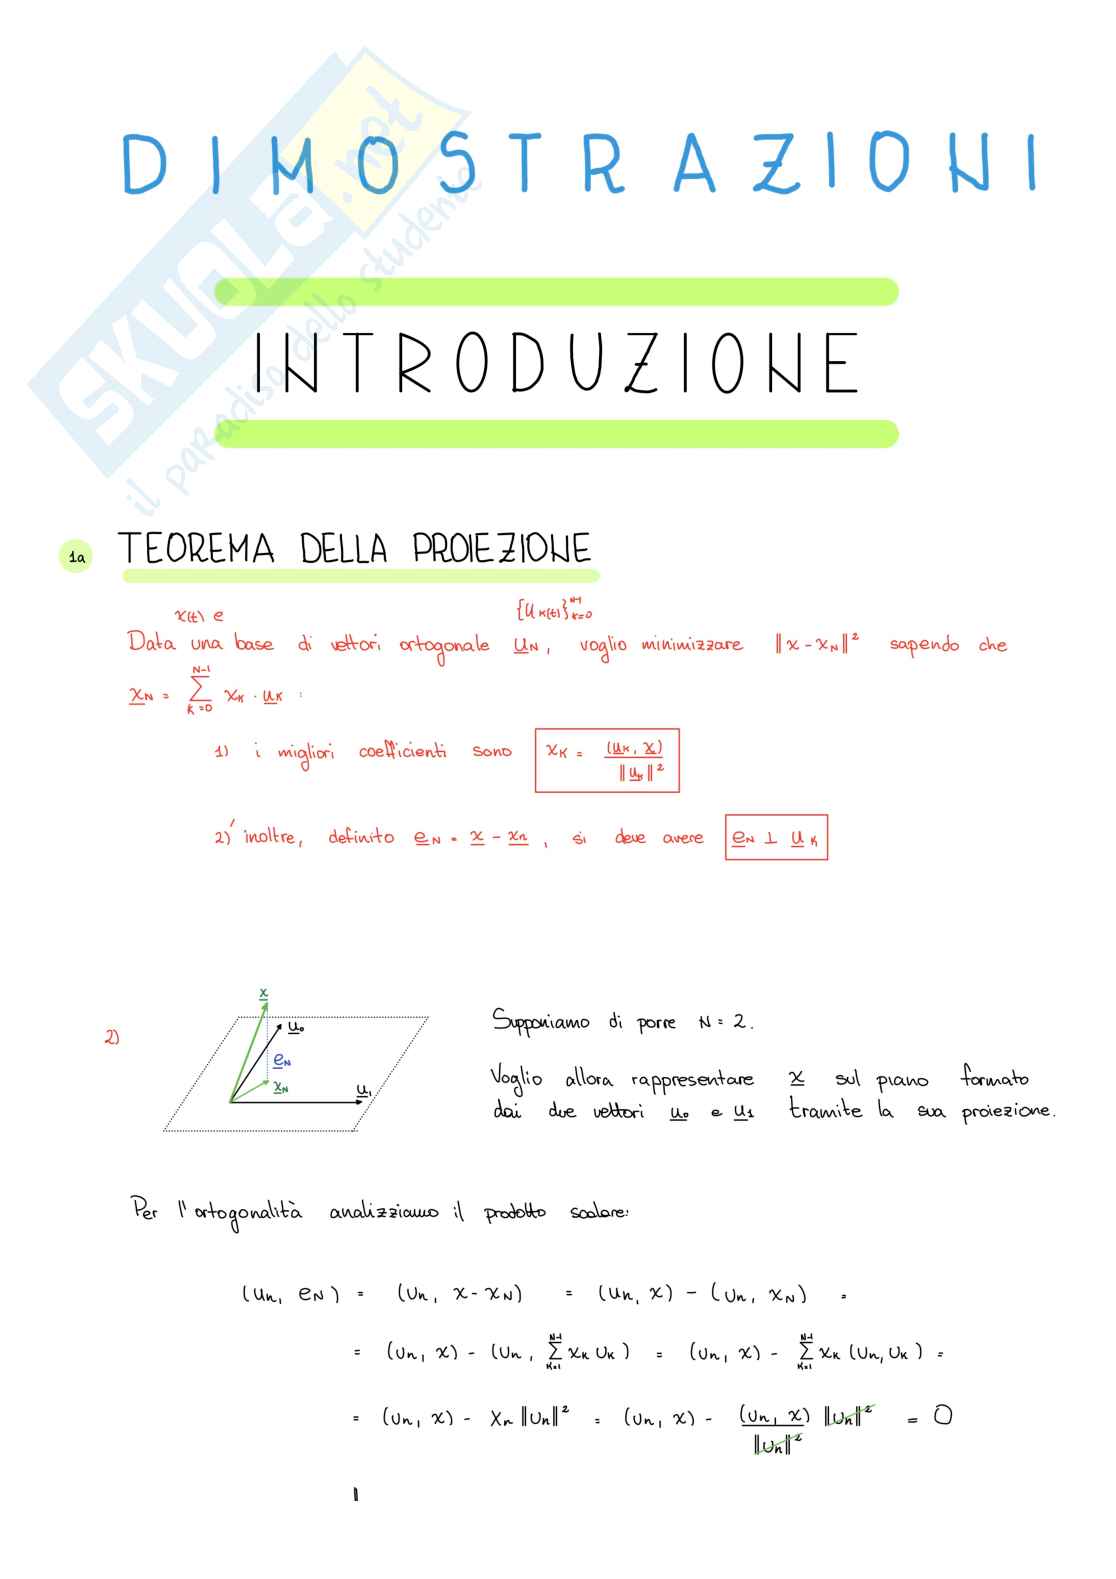 DIMOSTRAZIONI
SKUOLA.net
il paradiso dello studente
INTRODUZIONE
1a TEOREMA DELLA PROIEZIONE
x(t) e {u_K(t)}_{K=0}^{N-1}
Data una base di vettori ortogonale u_N, voglio minimizzare ‖x - x_N‖² sapendo che
x_N = ∑_{K=0}^{N-1} x_K · u_K :
1) i migliori coefficienti sono x_K = (u_K, x) / ‖u_K‖²
2) inoltre, definito e_N = x - x_n, si deve avere e_N ⊥ u_K
2)
x
u_0
e_N
x_N
u_1
Supponiamo di porre N = 2.
Voglio allora rappresentare x sul piano formato
dai due vettori u_0 e u_1 tramite la sua proiezione.
Per l'ortogonalità analizziamo il prodotto scalare:
(u_n, e_N) = (u_n, x - x_N) = (u_n, x) - (u_n, x_N) =
= (u_n, x) - (u_n, ∑_{K=1}^{N-1} x_K u_K) = (u_n, x) - ∑_{K=1}^{N-1} x_K (u_n, u_K) =
= (u_n, x) - x_n ‖u_n‖² = (u_n, x) - (u_n, x) / ‖u_n‖² ‖u_n‖² = 0